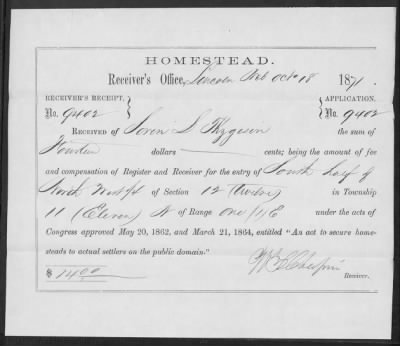 HOMESTEAD.
Receiver's Office, Lincoln Neb Oct 18 1871.
RECEIVER'S RECEIPT, APPLICATION,
No. 9402 No. 9402
RECEIVED OF Soren S Thygesen the sum of
Fourteen dollars cents; being the amount of fee
and compensation of Register and Receiver for the entry of South half of
North West 1/4 of Section 12 (Twelve) in Township
11 (Eleven) N of Range One (1) E under the acts of
Congress approved May 20, 1862, and March 21, 1864, entitled "An act to secure home-
steads to actual settlers on the public domain."
$ 14.00
Receiver.